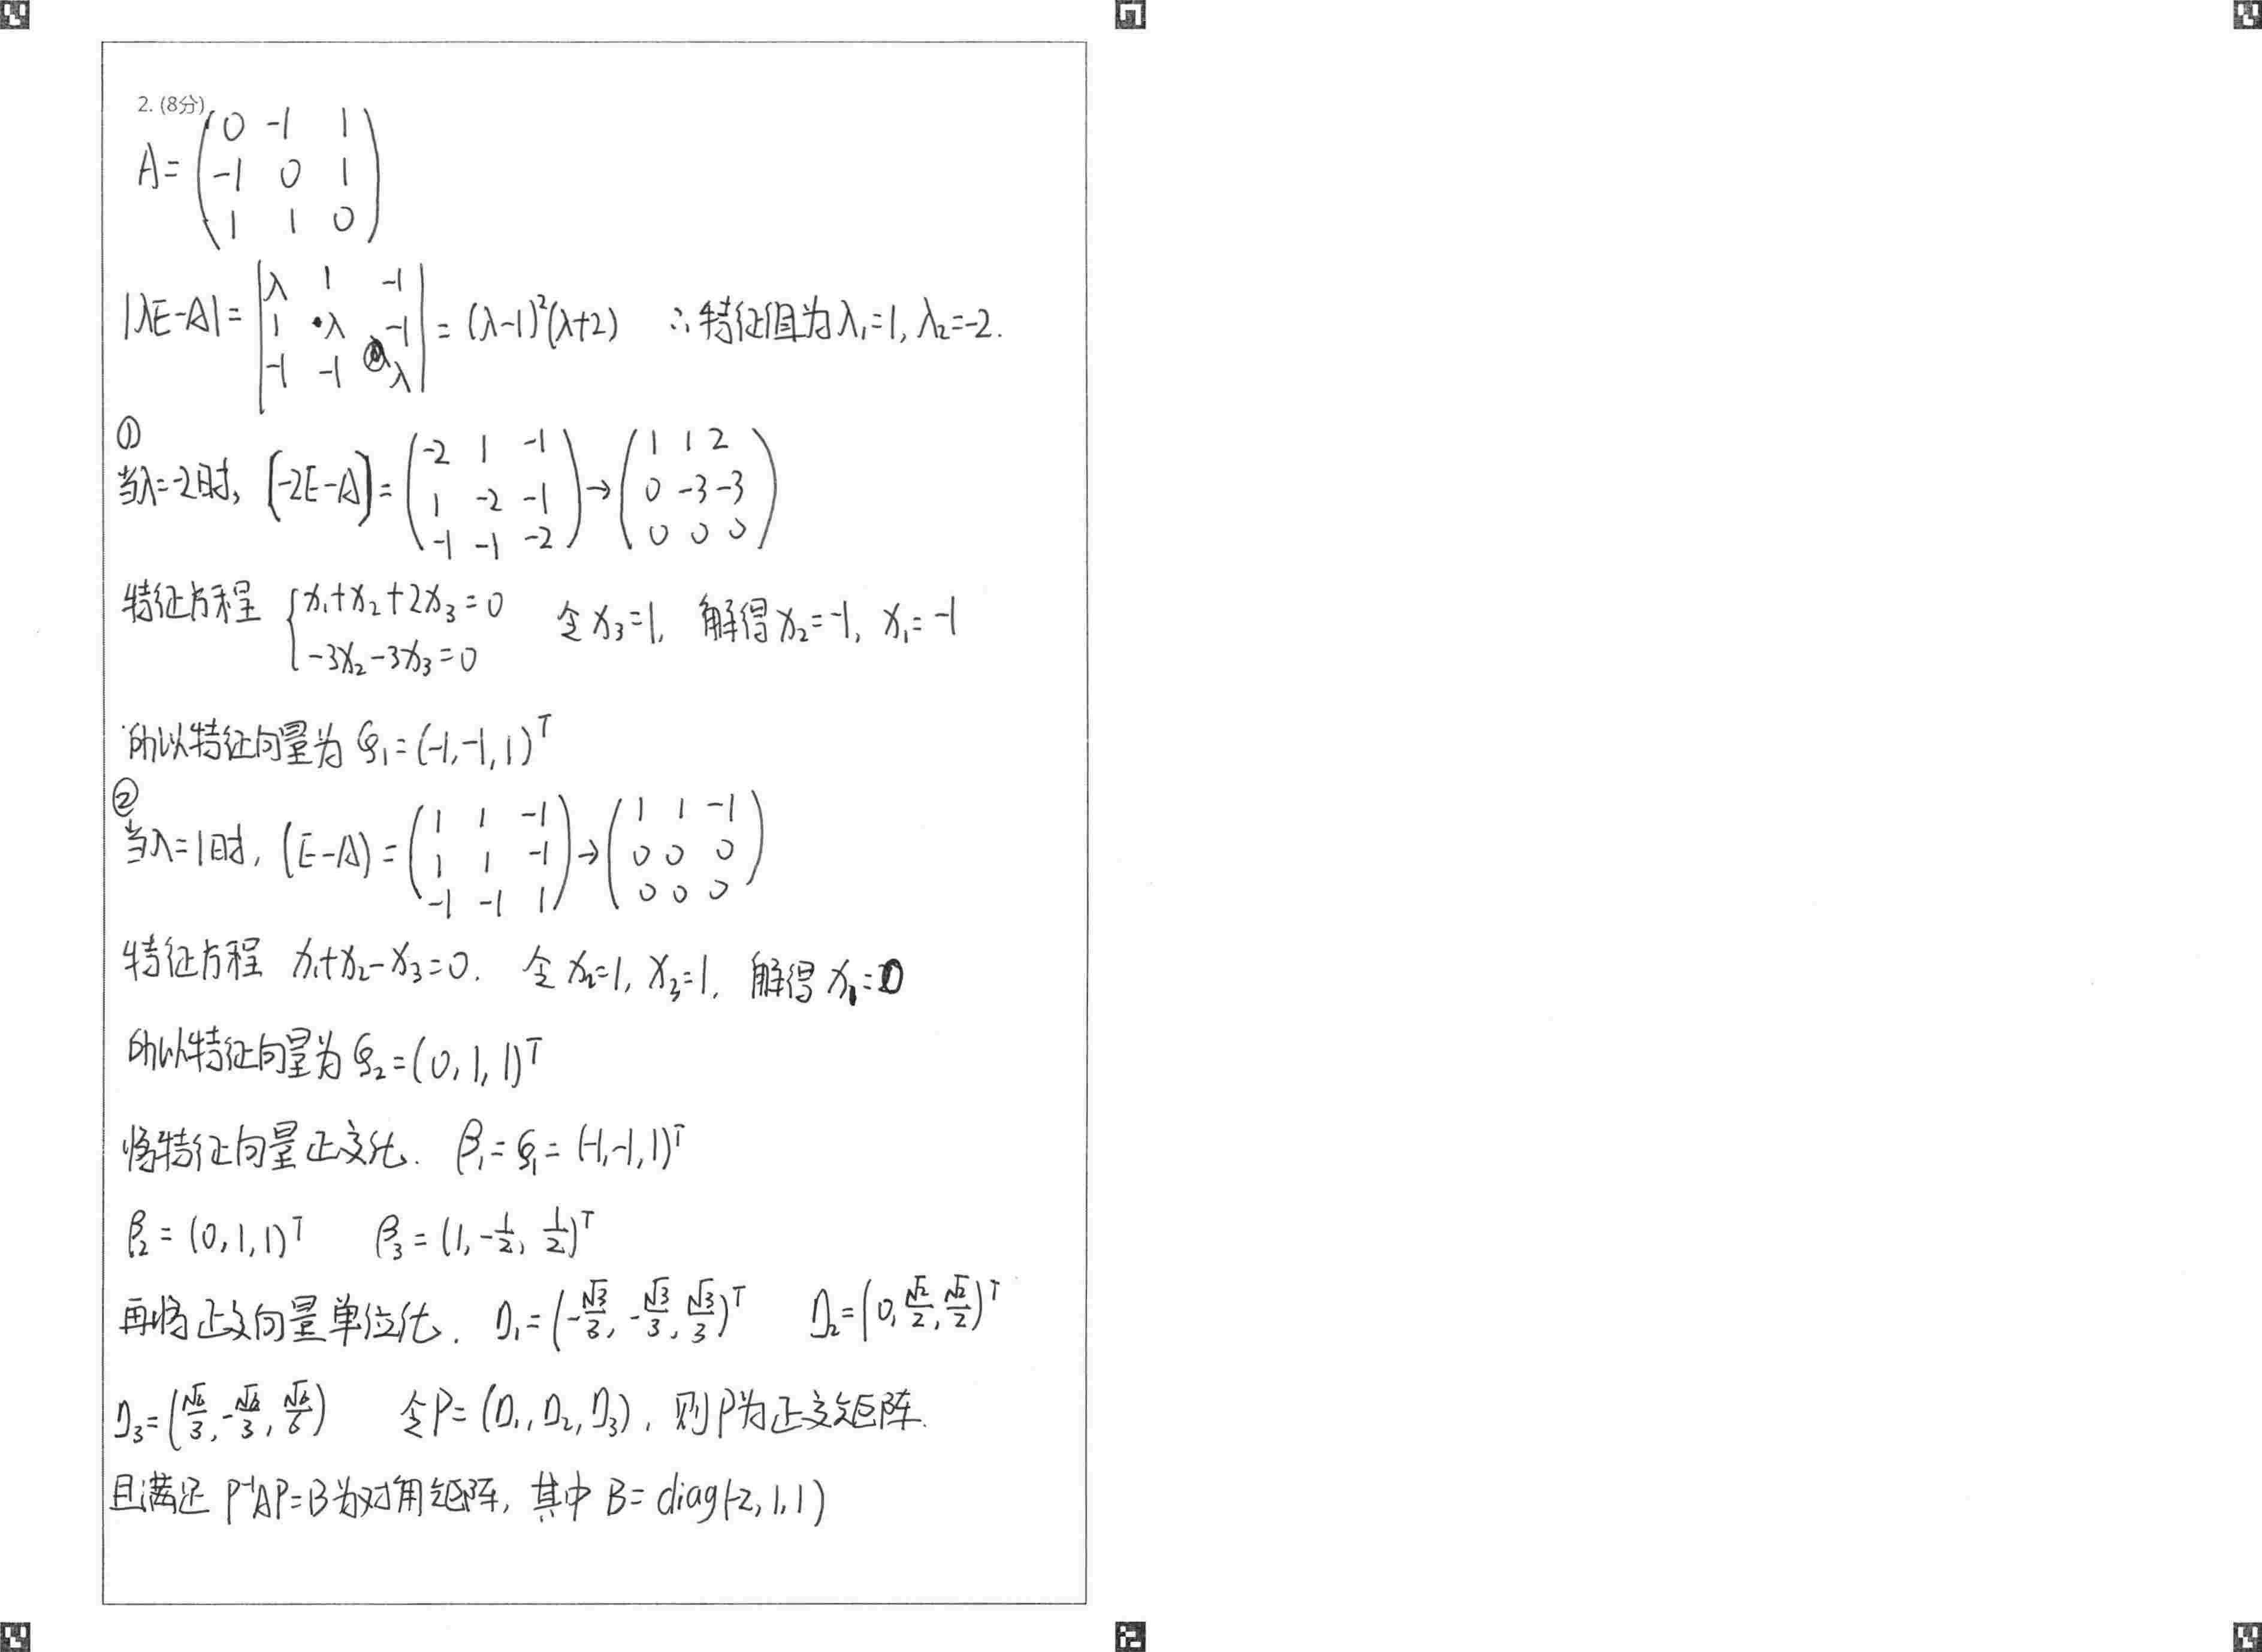 2. (8分)
A= (0 -1 1
-1 0 1
1 1 0)
|λE-A| = |λ 1 -1
1 λ -1
-1 -1 λ| = (λ-1)²(λ+2) ∴特征值为λ₁=1, λ₂=-2.
①
当λ=-2时, (-2E-A) = (-2 1 -1
1 -2 -1
-1 -1 -2) → (1 1 2
0 -3 -3
0 0 0)
特征方程 {x₁+x₂+2x₃=0
-3x₂-3x₃=0 令x₃=1, 解得x₂=-1, x₁=-1
所以特征向量为 ξ₁=(-1,-1,1)ᵀ
②
当λ=1时, (E-A) = (1 1 -1
1 1 -1
-1 -1 1) → (1 1 -1
0 0 0
0 0 0)
特征方程 x₁+x₂-x₃=0. 令x₂=1, x₃=1, 解得x₁=0
所以特征向量为 ξ₂=(0,1,1)ᵀ
将特征向量正交化. β₁=ξ₁=(-1,-1,1)ᵀ
β₂=(0,1,1)ᵀ β₃=(1,-1/2,1/2)ᵀ
再将正交向量单位化. η₁=(-√3/3,-√3/3,√3/3)ᵀ η₂=(0,√2/2,√2/2)ᵀ
η₃=(√6/3,-√6/3,√6/6) 令P=(η₁,η₂,η₃), 则P为正交矩阵.
且满足 P⁻¹AP=B为对角矩阵, 其中 B=diag(-2,1,1)